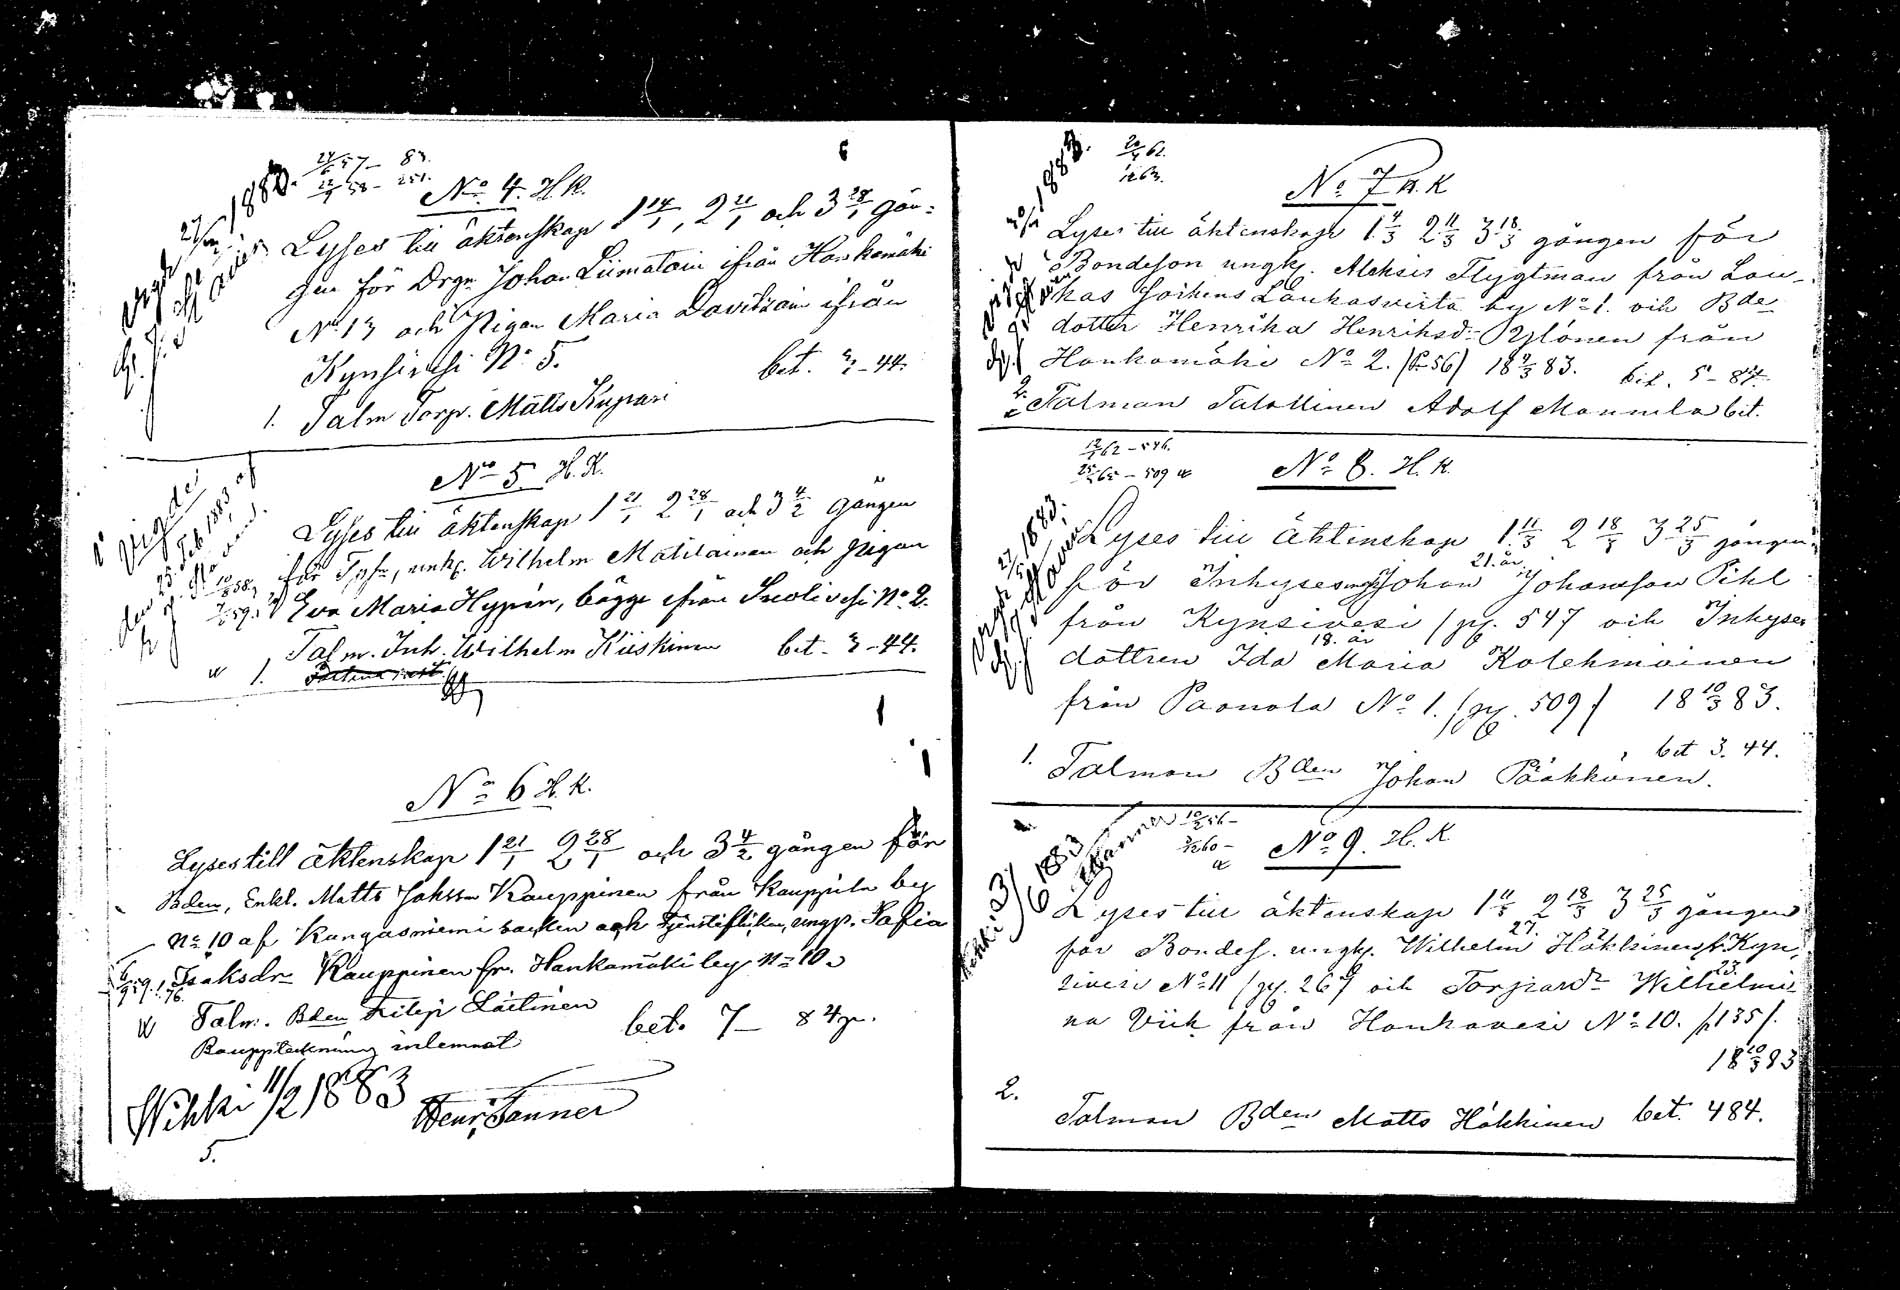 6
24/6 57 - 83.
12/9 58 - 251.
No 4. H.K.
Lyses till äktenskap 1 14/1, 2 21/1 och 3 28/1 gån=
gen för Drgn Johan Liimatain ifrån Hankamäki
No 13 och Pigan Maria Davitsain ifrån
Kynsivesi No 5.
bet. 3-44.
1. Talm Torp. Matts Kupari
1883.
No 5 H.K.
Vigde
den 25 Feb 1883 af
Lyses till äktenskap 1 21/1 2 28/1 och 3 4/2 gången
för unk. Wilhelm Matilainen och pigan
Eva Maria Hypén, bägge ifrån No 2.
1. Talm. Inh. Wilhelm Kiiskinen bet. 3-44.
No 6 H.K.
Lyses till äktenskap 1 21/1 2 28/1 och 3 4/2 gången för
Bden, Enkl. Matts Johsson Kauppinen från Kauppila by
No 10 af Kangasniemi socken och Tjensteflickan, ungp. Sofia
Isaksdr Kauppinen fr. Hankamäki by No 10.
Talm. Bden Filip Laitinen
bet. 7 - 84 p.
inlemnat
Wihki 11/2 1883 Henr. Fanner
5.
1883.
20/4 62.
No 7 H.K
Lyses till äktenskap 1 4/3 2 11/3 3 18/3 gången för
Bondeson ungk. Aleksis Flygtman från Lau-
kas Sockens Laukasvirta by No 1. och Bde
dotter Henrika Henriksd: Pylönen från
Hankamäki No 2. (P 56) 18 4/3 83. bet. 5 - 84.
2. Talman Talollinen Adolf Mannila bet.
12/1 62 - 546.
25/2 65 - 509
No 8. H.K.
1883.
Lyses till äktenskap 1 11/3 2 18/3 3 25/3 gången
21. år
för Inhyses Johan Johansson Pihl
från Kynsivesi /pg. 547 och Inhyses
18. år
dottren Ida Maria Kolehmainen
från Paanala No 1. /pg. 509/ 18 10/3 83.
bet 3. 44.
1. Talman Bden Johan Pääkkönen.
1883
No 9. H.K
Lyses till äktenskap 1 11/3 2 18/3 3 25/3 gången
27.
för Bondes. ungk. Wilhelm Häkkinen fr. Kyn,
23.
sivesi No 11 /pg. 267 och Torpardr Wilhelmi
na Viik från Hankavesi No 10. /p 135/.
18 10/3 83
2.
Talman Bden Matts Häkkinen bet. 484.